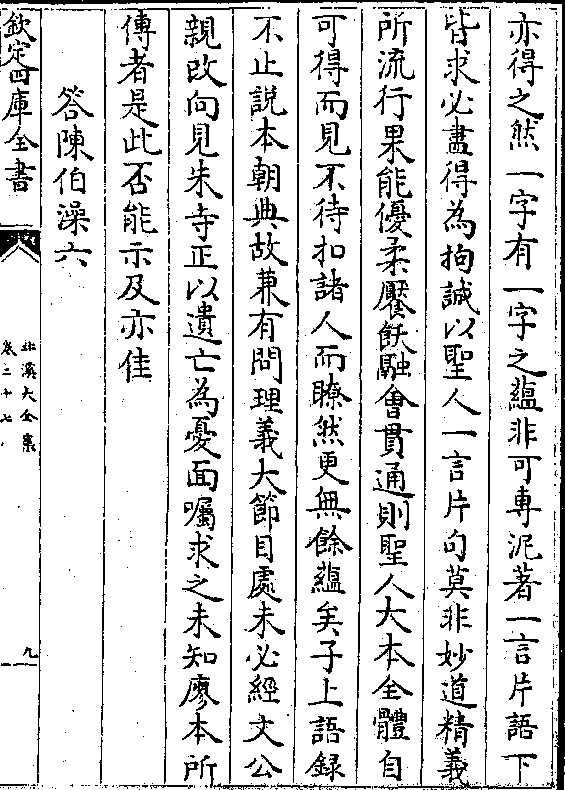 亦得之然一字有一字之蘊非可專泥著一言片語下
皆求必盡得為拘誠以聖人一言片句莫非妙道精義
所流行果能優柔饜飫融會貫通則聖人大本全體自
可得而見不待扣諸人而瞭然更無餘蘊矣子上語錄
不止説本朝典故兼有問理義大節目處未必經文公
親改向見朱寺正以遺亡為憂面囑求之未知廖本所
傳者是此否能示及亦佳
答陳伯澡六
欽定四庫全書
北溪大全集
卷二十七
九